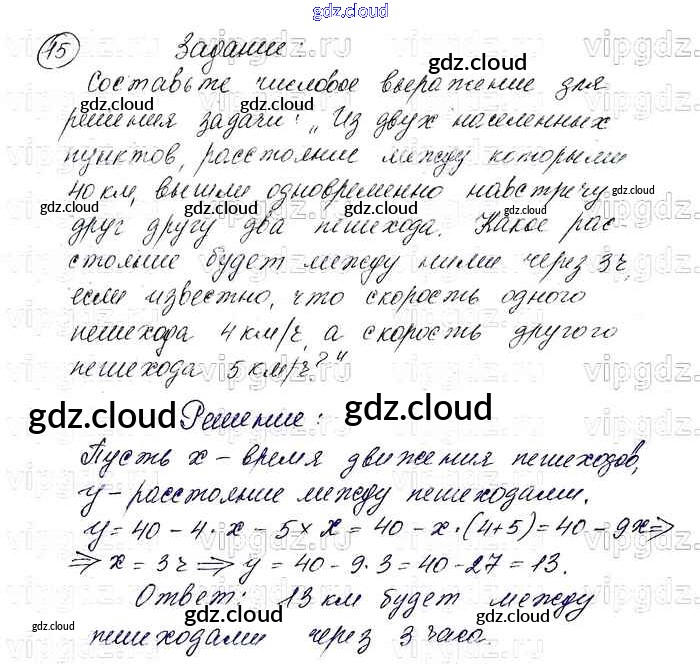 gdz.cloud
15 Задание:
Составьте числовое выражение для
решения задачи: „Из двух населенных
пунктов, расстояние между которыми
40 км, вышли одновременно навстречу
друг другу два пешехода. Какое рас-
стояние будет между ними через 3 ч,
если известно, что скорость одного
пешехода 4 км/ч, а скорость другого
пешехода 5 км/ч?"
gdz.cloud Решение: gdz.cloud
Пусть x – время движения пешеходов,
y – расстояние между пешеходами.
y = 40 – 4 · x – 5 × x = 40 – x · (4+5) = 40 – 9x ⇒
⇒ x = 3 ч ⇒ y = 40 – 9 · 3 = 40 – 27 = 13.
Ответ: 13 км будет между
пешеходами через 3 часа.